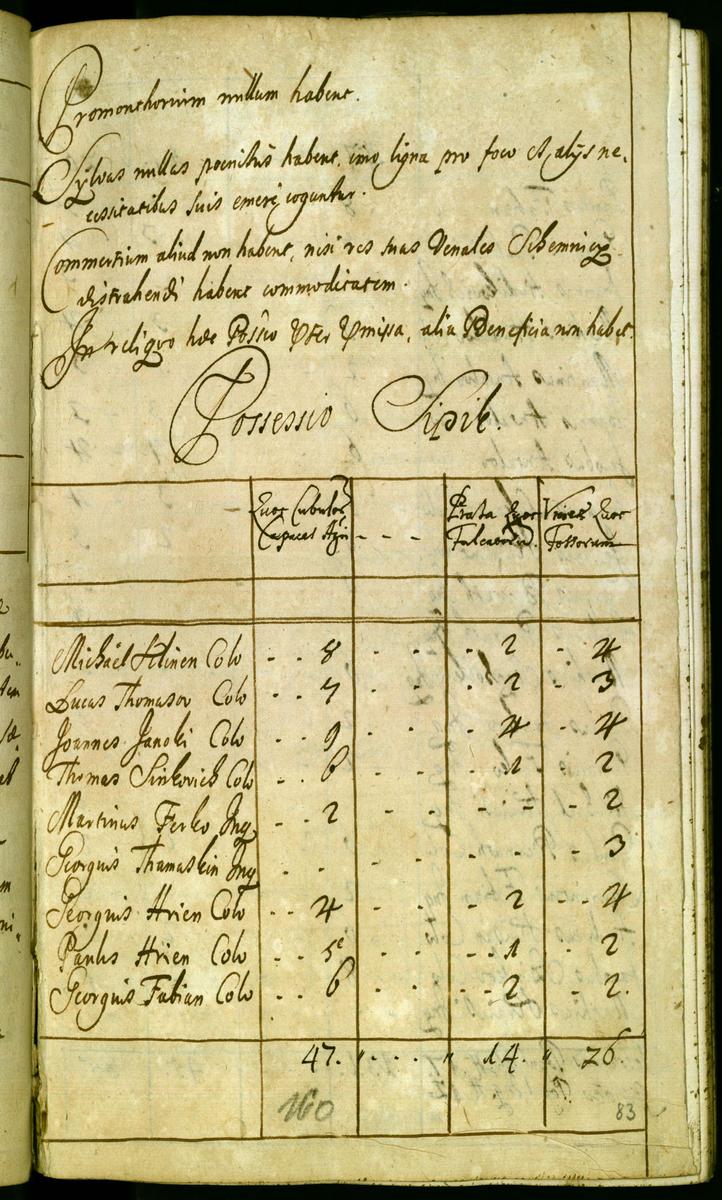 Promonthorium nullum habent.
Sÿlvas nullas poenitùs habent, imo ligna pro foco et alÿs ne,
cessitatibus suis emere coguntur.
Commertium aliud non habent, nisi res suas Venales Schemnicz
distrahendi habent commoditatem.
In reliquo haec Possio alia Beneficia non habet.
Possessio Sipik.
Cubulor Capacas - - - Prata Falcatorum Fossorum
Michaël Hlinen Colo - - 8 - - - - 2 - 4
Lucas Thomasov Colo - - 7 - - - - 2 - 3
Joannes Janoki Colo - - 9 - - - - 4 - 4
Thomas Sinkovich Colo - - 6 - - - - 1 - 2
Martinus Ferko Inq - - 2 - - - - - 2
Georgius Thamaskin Inq - - - - - - - 3
Georgius Hrien Colo - - 4 - - - 2 - - 4
Paulus Hrien Colo - - 5 - - - - 1 - 2
Georgius Fabian Colo - - 6 - - - - 2 - 2.
47. " - - - " 14. " 26.
160
83